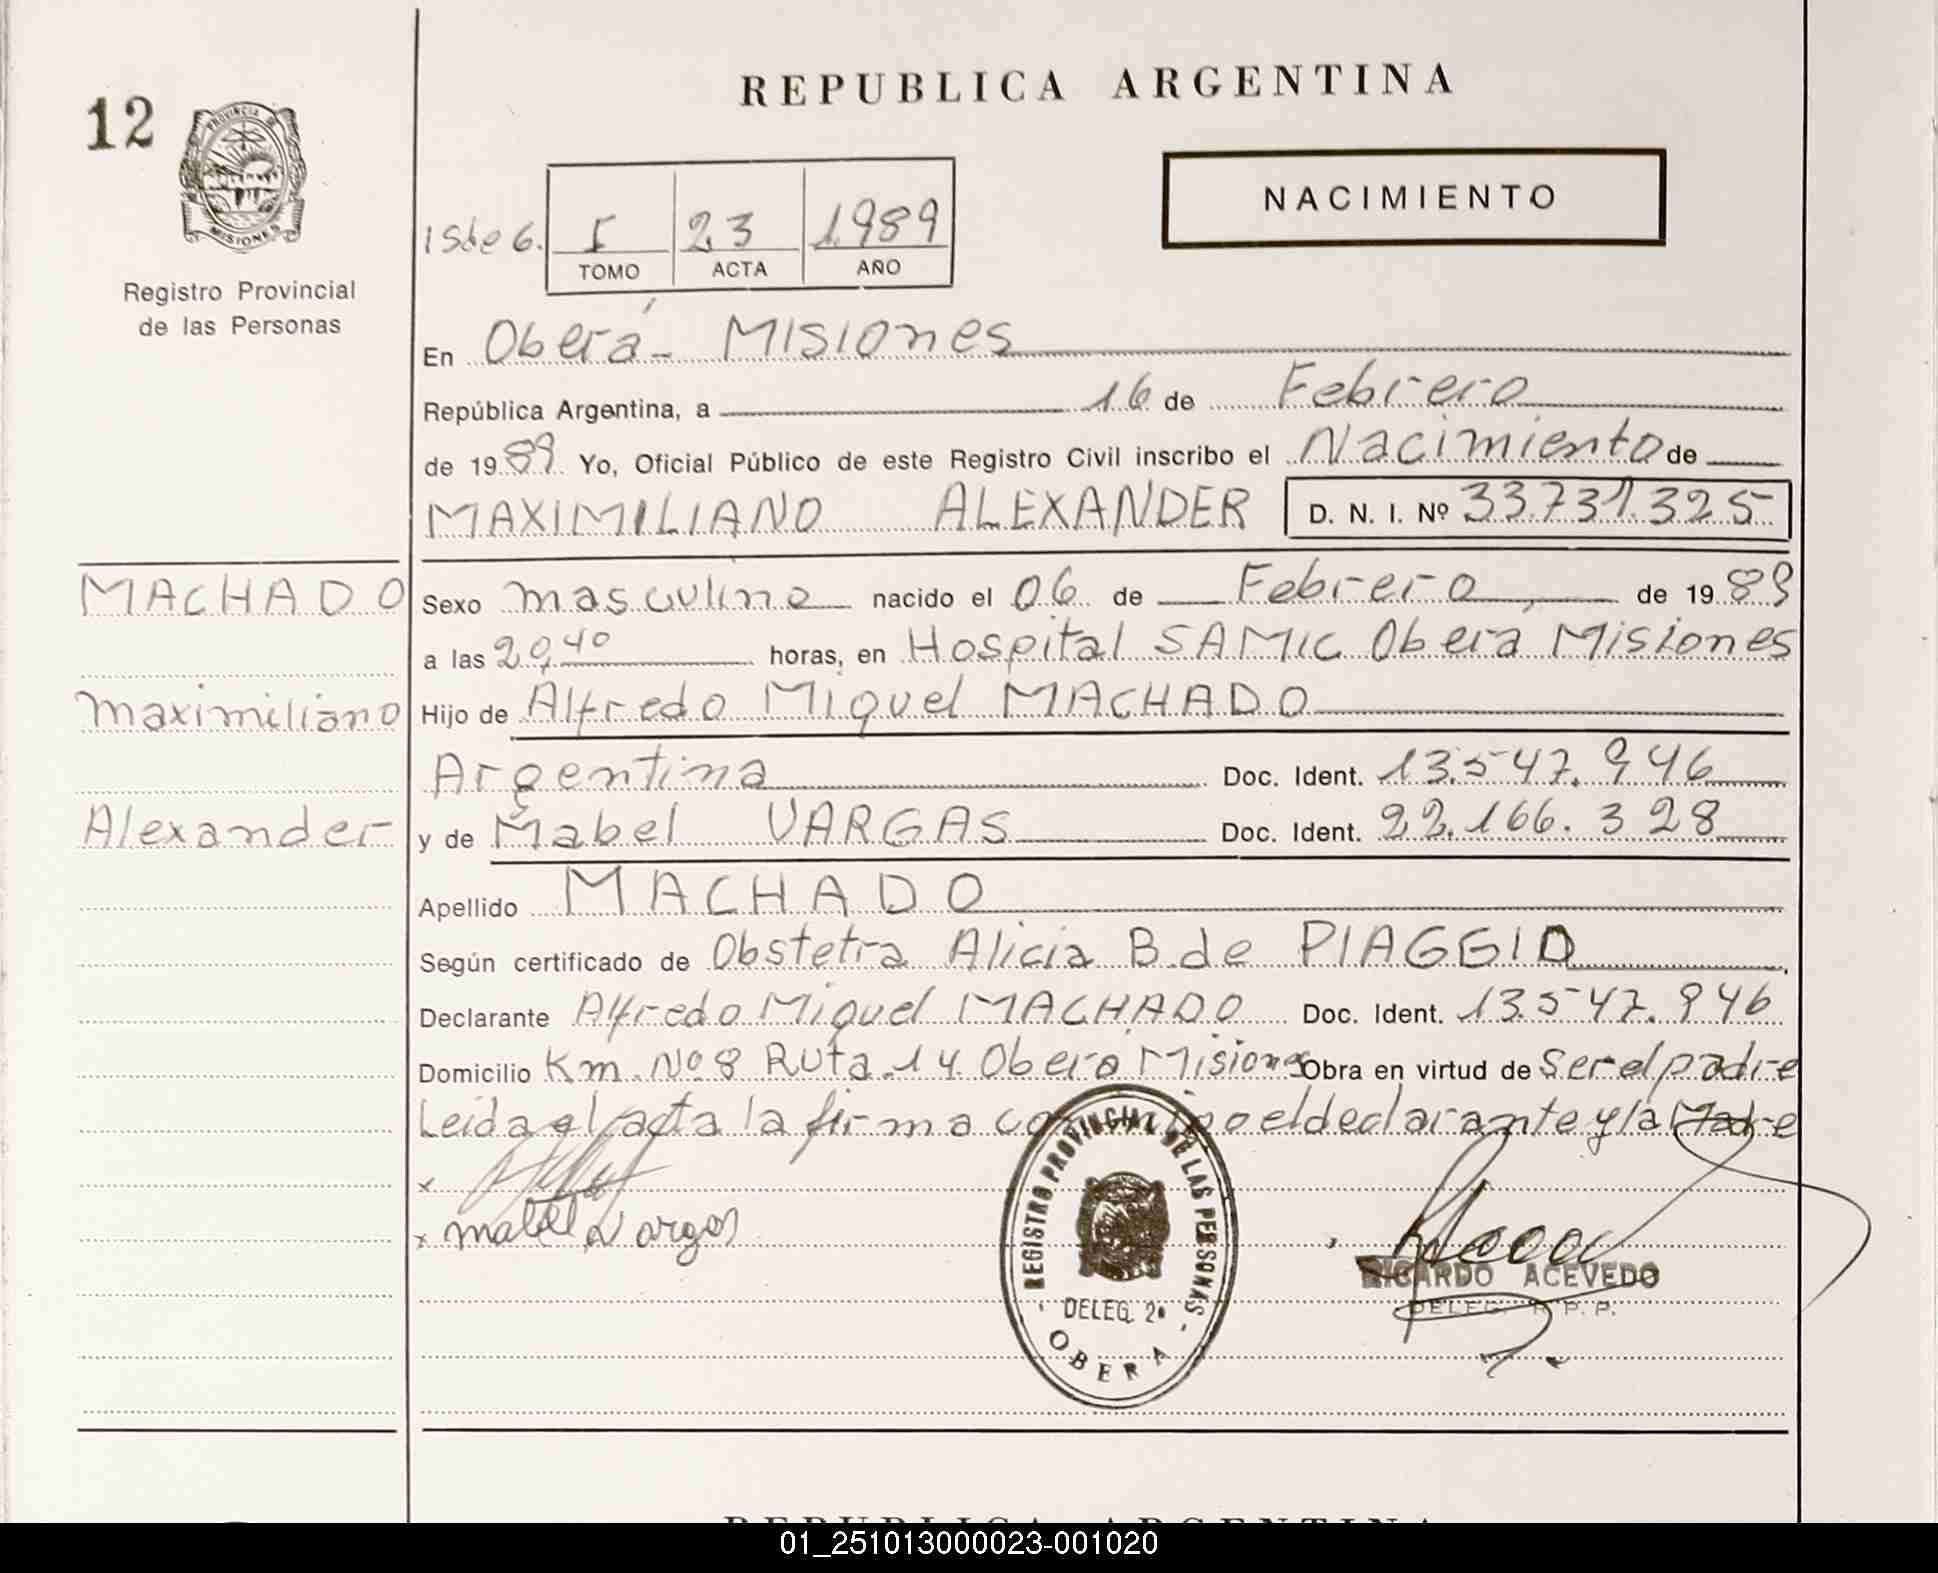 12
PROVINCIA DE
MISIONES
Registro Provincial
de las Personas
REPUBLICA ARGENTINA
NACIMIENTO
I 23 1989
TOMO ACTA AÑO
En Oberá - Misiones
República Argentina, a 16 de Febrero
de 1989 Yo, Oficial Público de este Registro Civil inscribo el Nacimiento de
MAXIMILIANO ALEXANDER D. N. I. Nº 33.731.325
MACHADO
Maximiliano
Alexander
Sexo masculino nacido el 06 de Febrero de 1989
a las 20,40 horas, en Hospital SAMIC Oberá Misiones
Hijo de Alfredo Miguel MACHADO
Argentina Doc. Ident. 13.547.946
y de Mabel VARGAS Doc. Ident. 22.166.328
Apellido MACHADO
Según certificado de Obstetra Alicia B. de PIAGGIO
Declarante Alfredo Miguel MACHADO Doc. Ident. 13.547.946
Domicilio Km. Nº 8 Ruta 14 Oberá Misiones Obra en virtud de Ser el padre
Leida el acta la firma conmigo el declarante y la Madre
x
x Mabel Vargas
REGISTRO PROVINCIAL DE LAS PERSONAS
DELEG. 2ª
OBERA
RICARDO ACEVEDO
DELEG. R. P. P.
REPUBLICA ARGENTINA
01_251013000023-001020